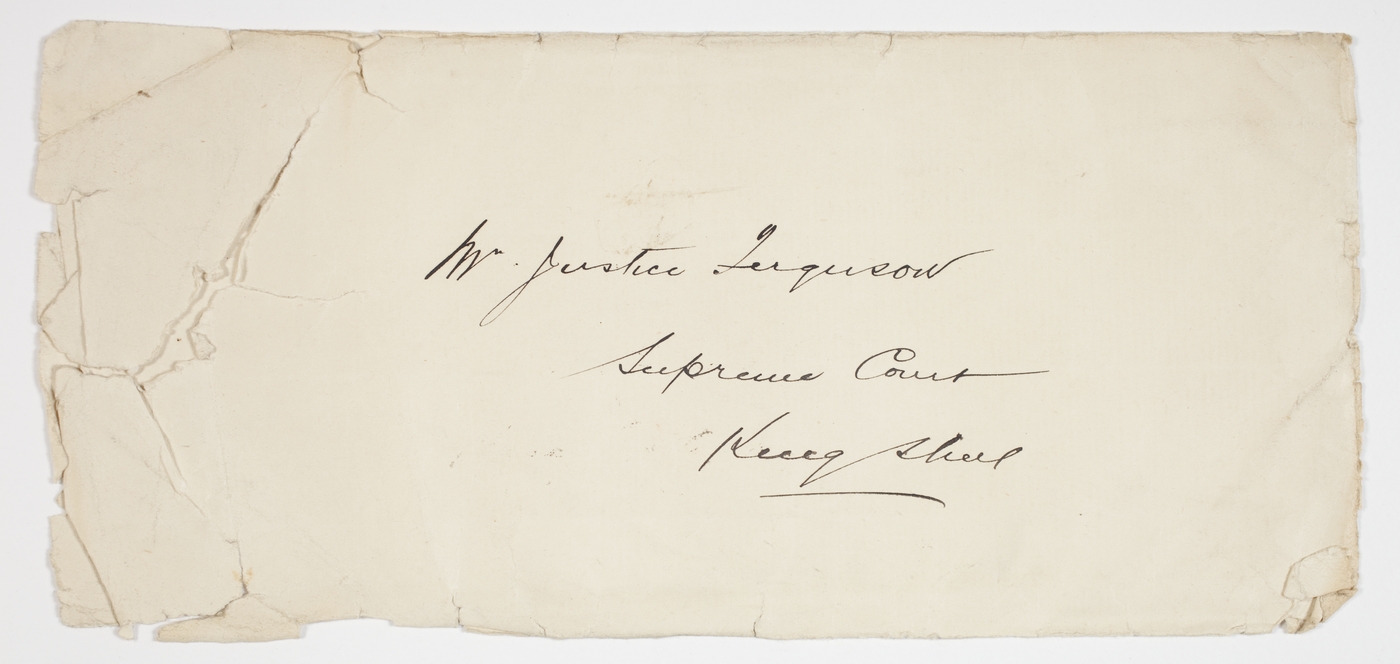 Mr. Justice Ferguson
Supreme Court
King Street